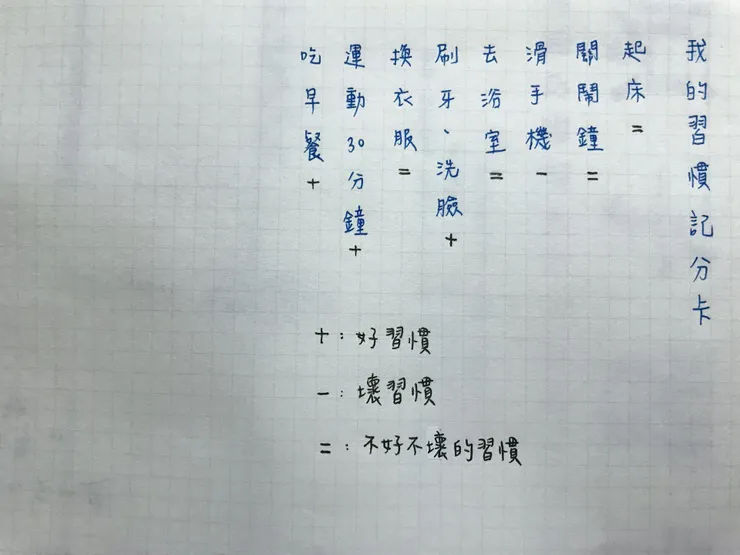 我的習慣記分卡
起床 =
關鬧鐘 =
滑手機 -
去浴室 =
刷牙、洗臉 +
換衣服 =
運動30分鐘 +
吃早餐 +
+：好習慣
-：壞習慣
=：不好不壞的習慣